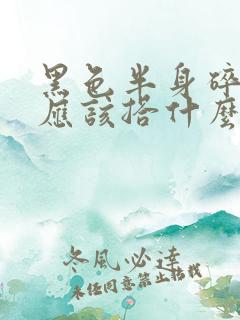 黑色半身碎
应该搭什么
冬風必達
未经同意禁止转载